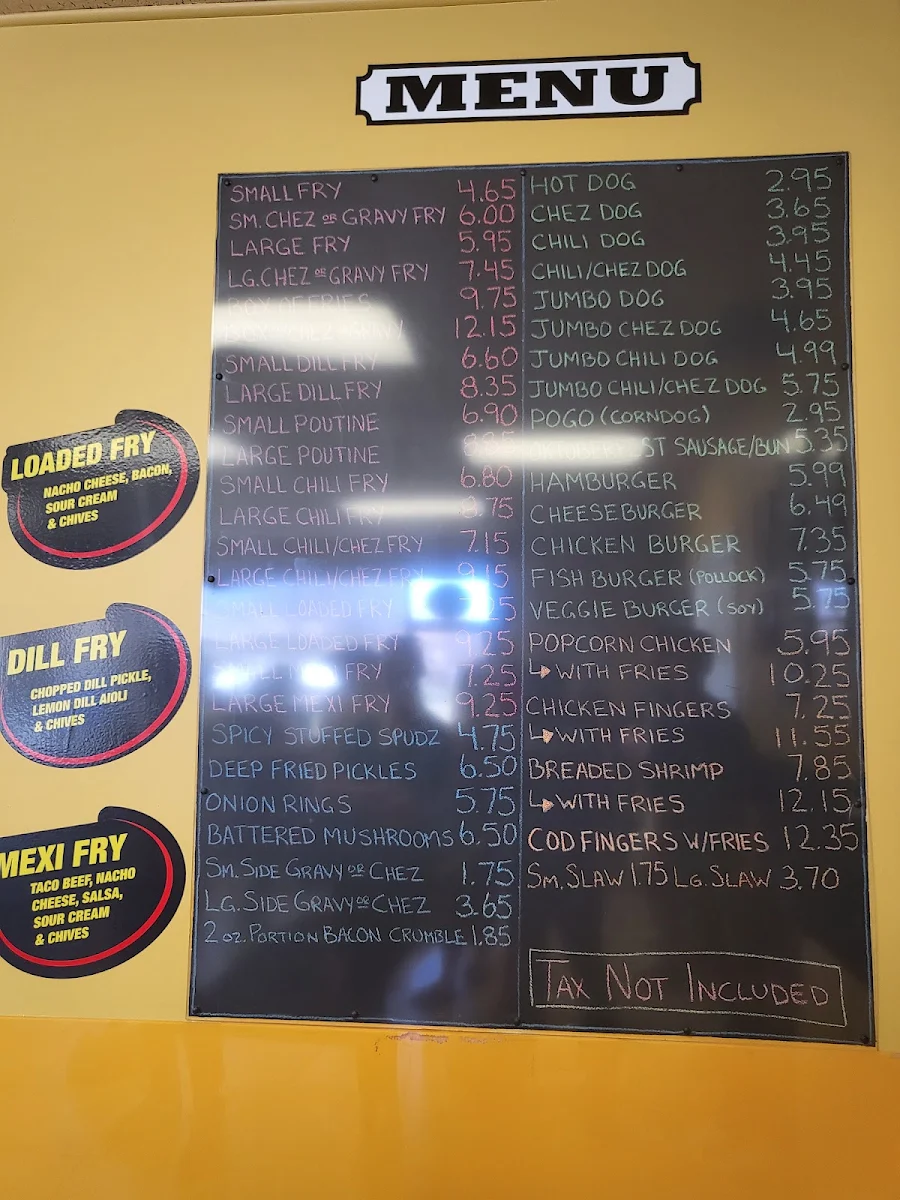 MENU
SMALL FRY 4.65
SM. CHEZ OR GRAVY FRY 6.00
LARGE FRY 5.95
LG. CHEZ OR GRAVY FRY 7.45
BOX OF FRIES 9.75
12.15
SMALL DILL FRY 6.60
LARGE DILL FRY 8.35
SMALL POUTINE 6.90
LARGE POUTINE
SMALL CHILI FRY 6.80
LARGE CHILI FRY 8.75
SMALL CHILI/CHEZ FRY 7.15
LARGE CHILI/CHEZ FRY 9.15
SMALL LOADED FRY
LARGE LOADED FRY 9.25
FRY 7.25
LARGE MEXI FRY 9.25
SPICY STUFFED SPUDZ 4.75
DEEP FRIED PICKLES 6.50
ONION RINGS 5.75
BATTERED MUSHROOMS 6.50
SM. SIDE GRAVY OR CHEZ 1.75
LG. SIDE GRAVY OR CHEZ 3.65
2 OZ. PORTION BACON CRUMBLE 1.85
HOT DOG 2.95
CHEZ DOG 3.65
CHILI DOG 3.95
CHILI/CHEZ DOG 4.45
JUMBO DOG 3.95
JUMBO CHEZ DOG 4.65
JUMBO CHILI DOG 4.99
JUMBO CHILI/CHEZ DOG 5.75
POGO (CORNDOG) 2.95
SAUSAGE/BUN 5.35
HAMBURGER 5.99
CHEESEBURGER 6.49
CHICKEN BURGER 7.35
FISH BURGER (POLLOCK) 5.75
VEGGIE BURGER (SOY) 5.75
POPCORN CHICKEN 5.95
↳ WITH FRIES 10.25
CHICKEN FINGERS 7.25
↳ WITH FRIES 11.55
BREADED SHRIMP 7.85
↳ WITH FRIES 12.15
COD FINGERS W/FRIES 12.35
SM. SLAW 1.75 LG. SLAW 3.70
TAX NOT INCLUDED
LOADED FRY
NACHO CHEESE, BACON,
SOUR CREAM
& CHIVES
DILL FRY
CHOPPED DILL PICKLE,
LEMON DILL AIOLI
& CHIVES
MEXI FRY
TACO BEEF, NACHO
CHEESE, SALSA,
SOUR CREAM
& CHIVES